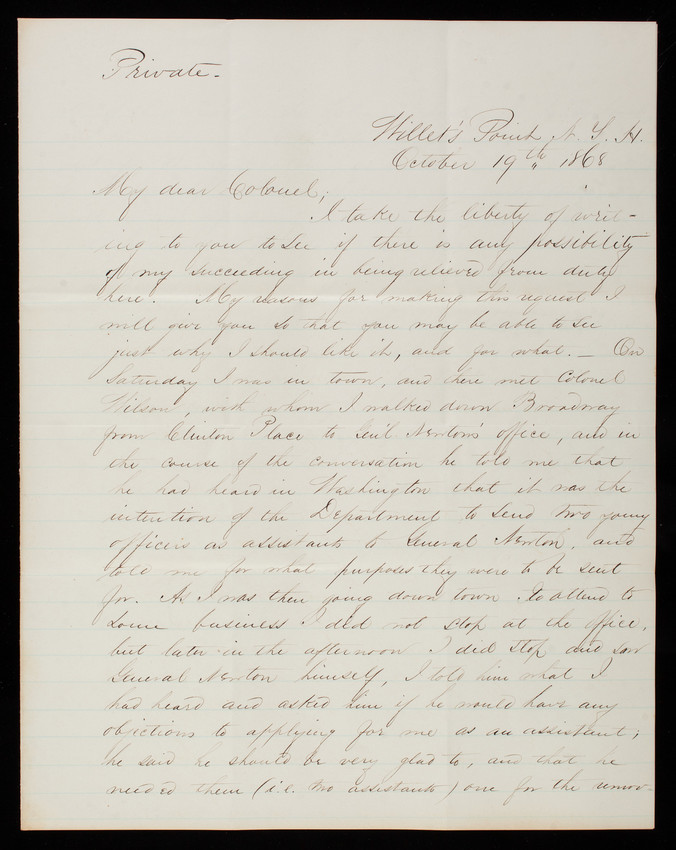 Private.
Willet's Point N. Y. H.
October 19th 1868
My dear Colonel;
I take the liberty of writ-
ing to you to see if there is any possibility
of my succeeding in being relieved from duty
here. My reasons for making this request I
will give you so that you may be able to see
just why I should like it, and for what. — On
Saturday I was in town, and there met Colonel
Wilson, with whom I walked down Broadway
from Clinton Place to Gen'l Newton's office, and in
the course of the conversation he told me that
he had heard in Washington that it was the
intention of the Department to send two young
officers as assistants to General Newton, and
told me for what purposes they were to be sent
for. As I was then going down town to attend to
some business I did not stop at the office,
but later in the afternoon I did stop and saw
General Newton himself, I told him what I
had heard and asked him if he would have any
objections to applying for me as an assistant;
he said he should be very glad to, and that he
needed them (i.e. two assistants) one for the remov-